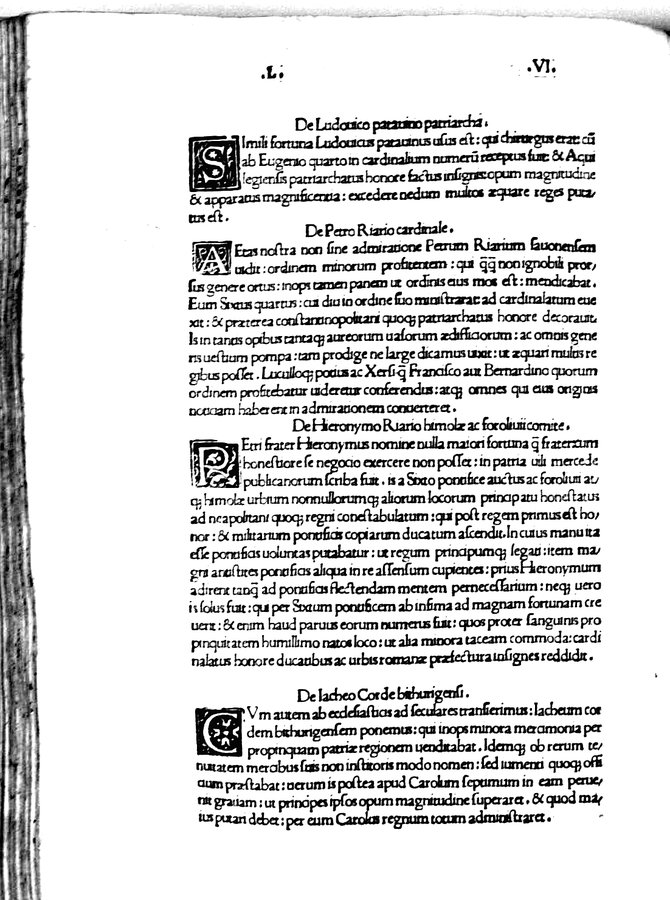 .L. .VI.
De Ludouico patauino patriarcha.
SImili fortuna Ludouicus patauinus usus est: qui chirurgus erat: cū
ab Eugenio quarto in cardinalium numerū receptus fuit: & Aqui
legiensis patriarchatus honore factus insignis: opum magnitudine
& apparatus magnificentia: excedere nedum multos æquare reges puta/
tus est.
De Petro Riario cardinale.
AEtas nostra non sine admiratione Petrum Riarium sauonensem
uidit: ordinem minorum profitentem: qui q̄q̄ non ignobili pror/
sus genere ortus: inops tamen panem ut ordinis eius mos est: mendicabat.
Eum Sixtus quartus: cui diu in ordine suo ministrarat: ad cardinalatum eue
xit: & præterea constantinopolitani quoq; patriarchatus honore decorauit.
Is in tantis opibus tantaq; aureorum uasorum ædificiorum: ac omnis gene
ris uestium pompa: tam prodige ne large dicamus uixit: ut æquari multis re
gibus posset. Luculloq; potius ac Xersi q̄ Francisco aut Bernardino quorum
ordinem profitebatur uideretur conferendus: atq; omnes qui eius originis
notitiam haberent in admirationem conuerteret.
De Hieronymo Riario himolæ ac foroliuii comite.
PEtri frater Hieronymus nomine nulla maiori fortuna q̄ fraterzum
honestiore se negocio exercere non posset: in patria uili mercede
publicanorum scriba fuit. is a Sixto pontifice auctus ac foroliui at/
q; himolæ urbium nonnullorumq; aliorum locorum principatu honestatus
ad neapolitani quoq; regni conestabulatum: qui post regem primus est ho/
nor: & militarium pontificis copiarum ducatum ascendit. In cuius manu ita
esse pontificis uoluntas putabatur: ut regum principumq; legati: item ma/
gni antistites pontificis aliqua in re assensum cupientes: prius Hieronymum
adirent tanq̄ ad pontificis flectendam mentem pernecessarium: neq; uero
is solus fuit: qui per Sixtum pontificem ab infima ad magnam fortunam cre
uerit: & enim haud paruus eorum numerus fuit: quos propter sanguinis pro
pinquitatem humillimo natos loco: ut alia minora taceam commoda: cardi
nalatus honore ducatibus ac urbis romanæ præfectura insignes reddidit.
De Iacheo Corde bithurigensi.
CVm autem ab ecclesiasticis ad seculares transierimus: Iacheum cor
dem bithurigensem ponemus: qui inops minora mercimonia per
propinquam patriæ regionem uenditabat. Idemq; ob rerum te/
nuitatem mercibus suis non institoris modo nomen: sed iumenti quoq; offi
cium præstabat: uerum is postea apud Carolum septimum in eam perue/
nit gratiam: ut principes ipsos opum magnitudine superaret. & quod ma/
ius putari debet: per eum Carolus regnum totum administraret.